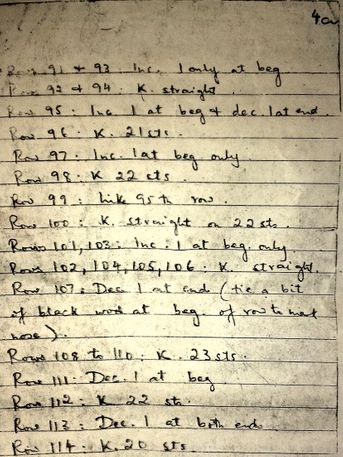 4a
Row 91 & 93 Inc. 1 only at beg
Row 92 & 94. K. straight.
Row 95: Inc 1 at beg & dec. 1 at end.
Row 96. K. 21 sts.
Row 97: Inc. 1 at beg only
Row 98: K 22 sts.
Row 99: Like 95th row.
Row 100: K. straight on 22 sts.
Rows 101, 103: Inc: 1 at beg. only
Rows 102, 104, 105, 106. K. straight.
Row 107: Dec. 1 at end (tie a bit
of black wool at beg. of row to mark
nose).
Rows 108 to 110: K. 23 sts.
Row 111: Dec. 1 at beg.
Row 112: K. 22 sts.
Row 113: Dec. 1 at both ends.
Row 114: K. 20 sts.